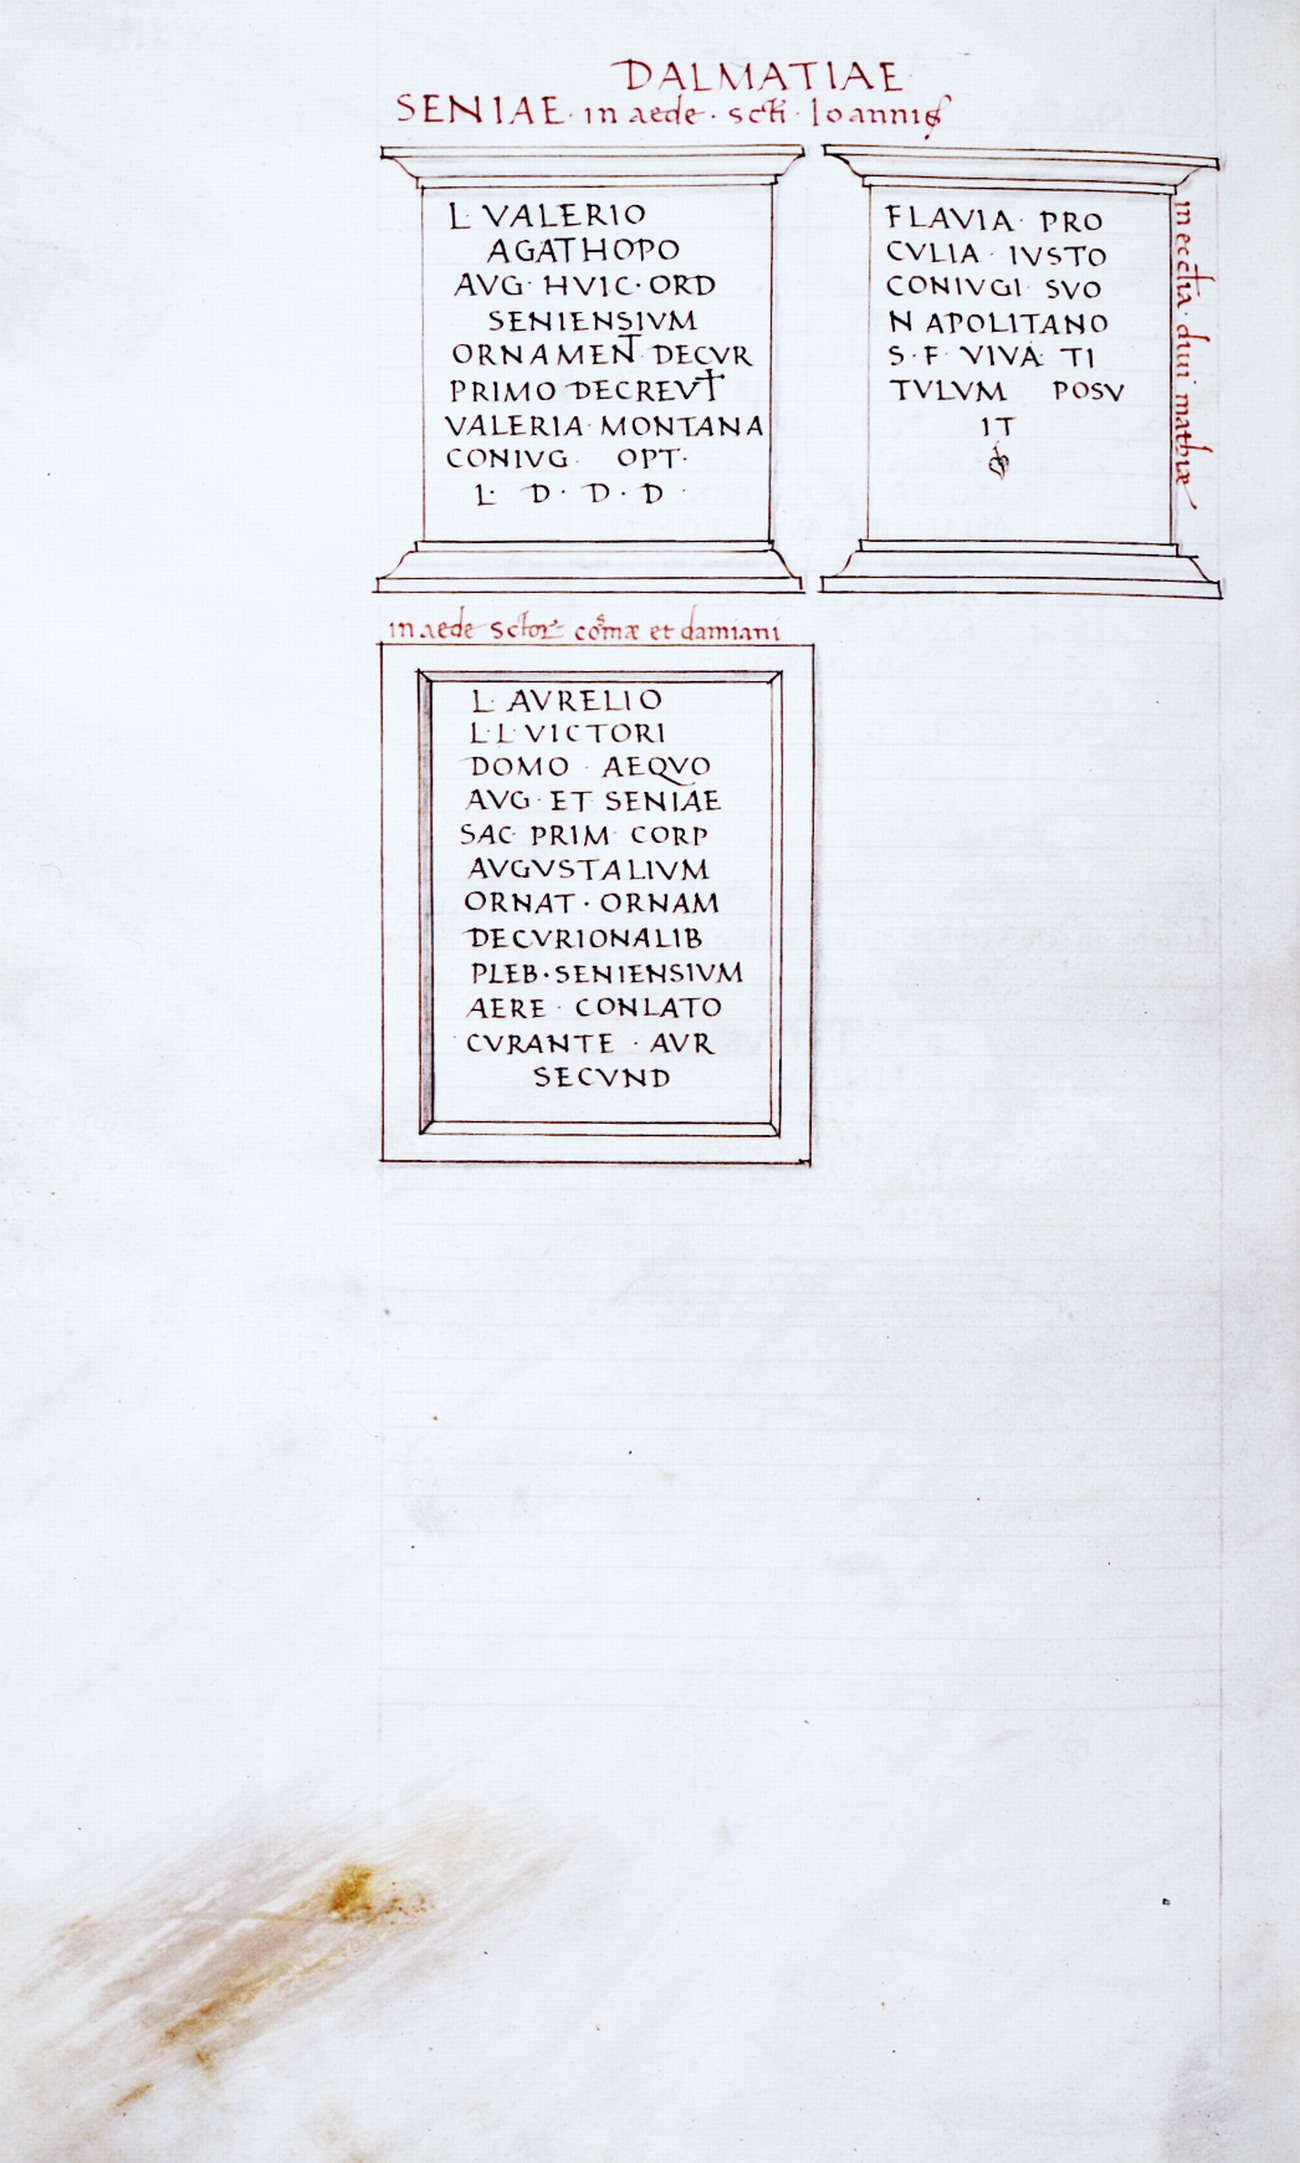 DALMATIAE
SENIAE · in aede · scti · Ioannis
L· VALERIO
AGATHOPO
AVG· HVIC· ORD
SENIENSIVM
ORNAMENT DECVR
PRIMO DECREVT
VALERIA· MONTANA
CONIVG· OPT·
L· D· D· D·
FLAVIA· PRO
CVLIA · IVSTO
CONIVGI· SVO
N APOLITANO
S· F· VIVA· TI
TVLVM POSV
IT
in ecctia· diui mathiæ
in aede sctor cosmæ et damiani
L· AVRELIO
L·L· VICTORI
DOMO · AEQVO
AVG· ET SENIAE
SAC· PRIM· CORP
AVGVSTALIVM
ORNAT · ORNAM
DECVRIONALIB
PLEB·SENIENSIVM
AERE · CONLATO
CVRANTE · AVR
SECVND